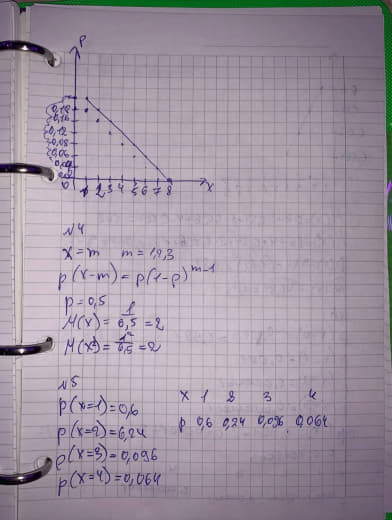 P
0,18
0,16
0,12
0,08
0,06
0,04
0 1 2 3 4 5 6 7 8 x
№4
x=m m=1,2,3
p(x=m)=p(1-p)^m-1
p=0,5
M(x)= 1/0,5 =2
M(x²)= 1²/0,5 =2
№5
p(x=1)=0,6
p(x=2)=0,24
p(x=3)=0,096
p(x=4)=0,064
x 1 2 3 4
p 0,6 0,24 0,096 0,064